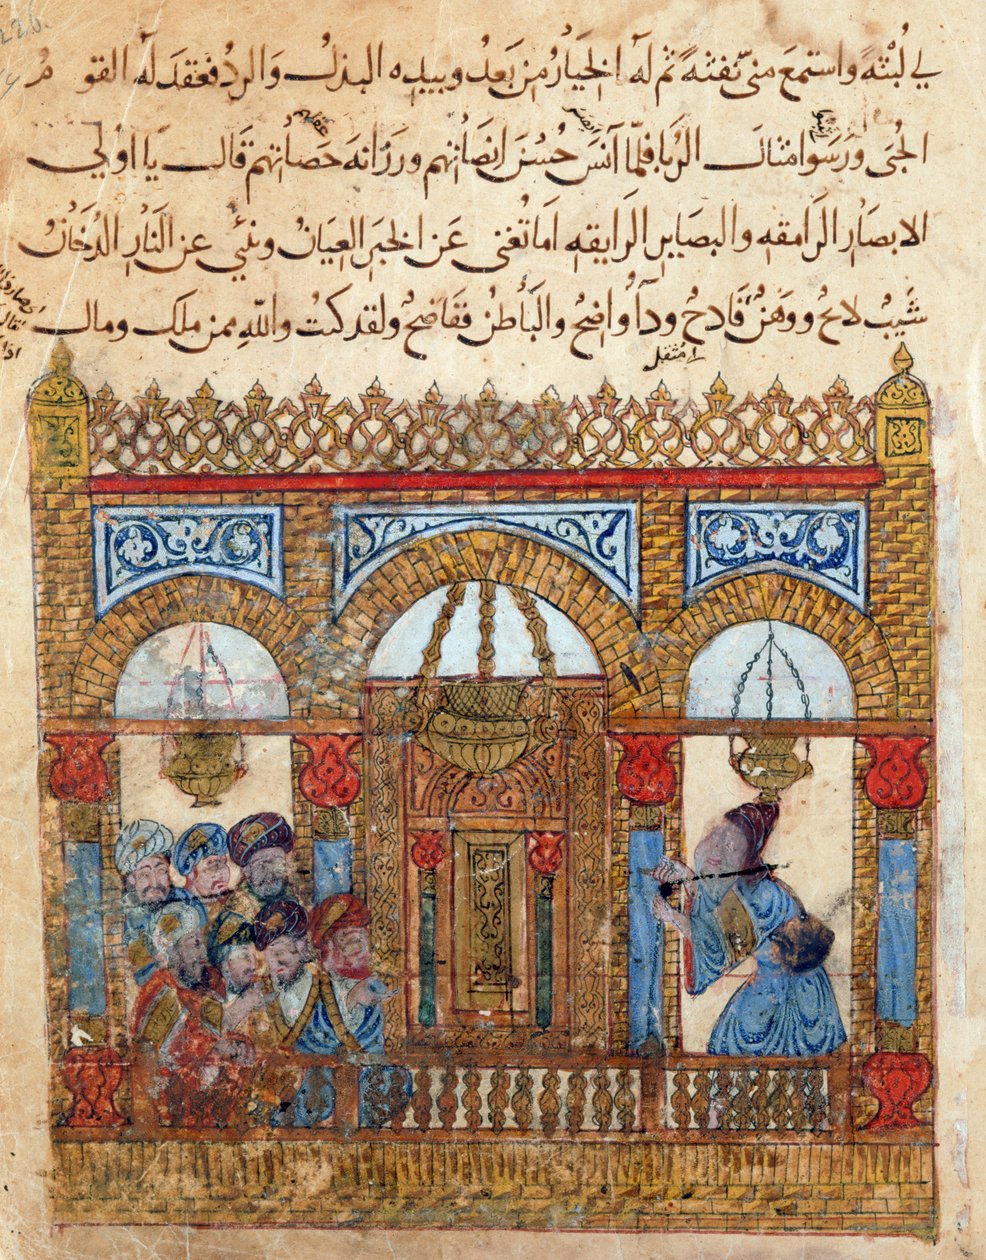 لي لُبْثَةً واستمع منى نفثةً ثم له الخيارُ من بَعدُ وبيده البذلُ والردُ فعقد له القومُ
الحُبَى ورَسَوا امثال الرُبا فلمّا آنسَ حُسْنَ انصاتهم ورزانة حصاتهم قال يا اولي
الابصار الرامقه والبصاير الرايقه اما تُغنى عن الخبر العيانُ وينُبئ عن النار الدخانُ
شيبٌ لايحٌ ووهنٌ قادحٌ وداءٌ واضحٌ والباطنُ ففاضحٌ ولقد كنت واللهِ ممن ملك ومال